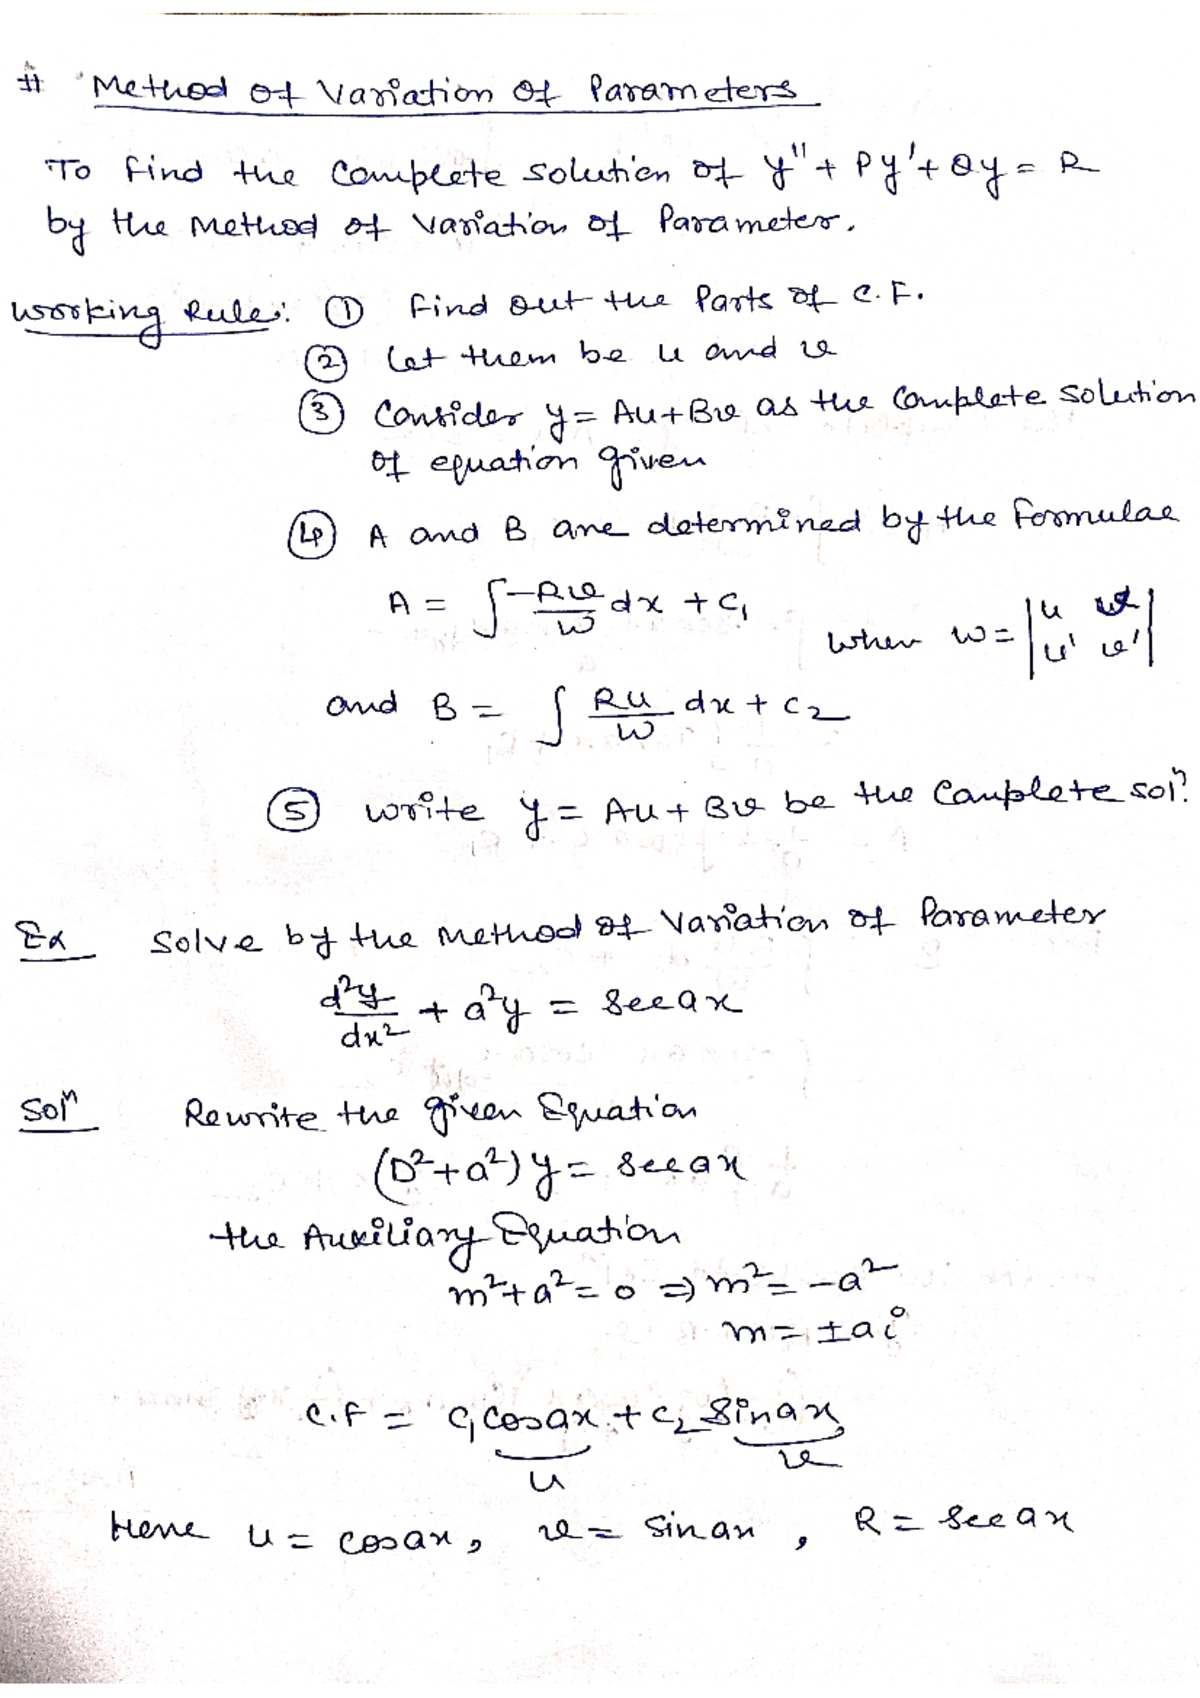 # Method of Variation of Parameters
To find the Complete solution of y'' + Py' + Qy = R
by the Method of Variation of Parameter.
Working Rule: ① Find out the Parts of C.F.
② Let them be u and v
③ Consider y = Au + Bv as the Complete solution
of equation given
④ A and B are determined by the formulae
A = ∫ -Rv/W dx + C₁
when W = |u v|
|u' v'|
and B = ∫ Ru/W dx + C₂
⑤ write y = Au + Bv be the Complete solⁿ.
Ex Solve by the Method of Variation of Parameter
d²y/dx² + a²y = Sec ax
Solⁿ Rewrite the given Equation
(D² + a²) y = Sec ax
the Auxiliary Equation
m² + a² = 0 ⇒ m² = -a²
m = ±ai
C.F = C₁ Cos ax + C₂ Sin ax
u v
Here u = cos ax, v = sin ax, R = Sec ax